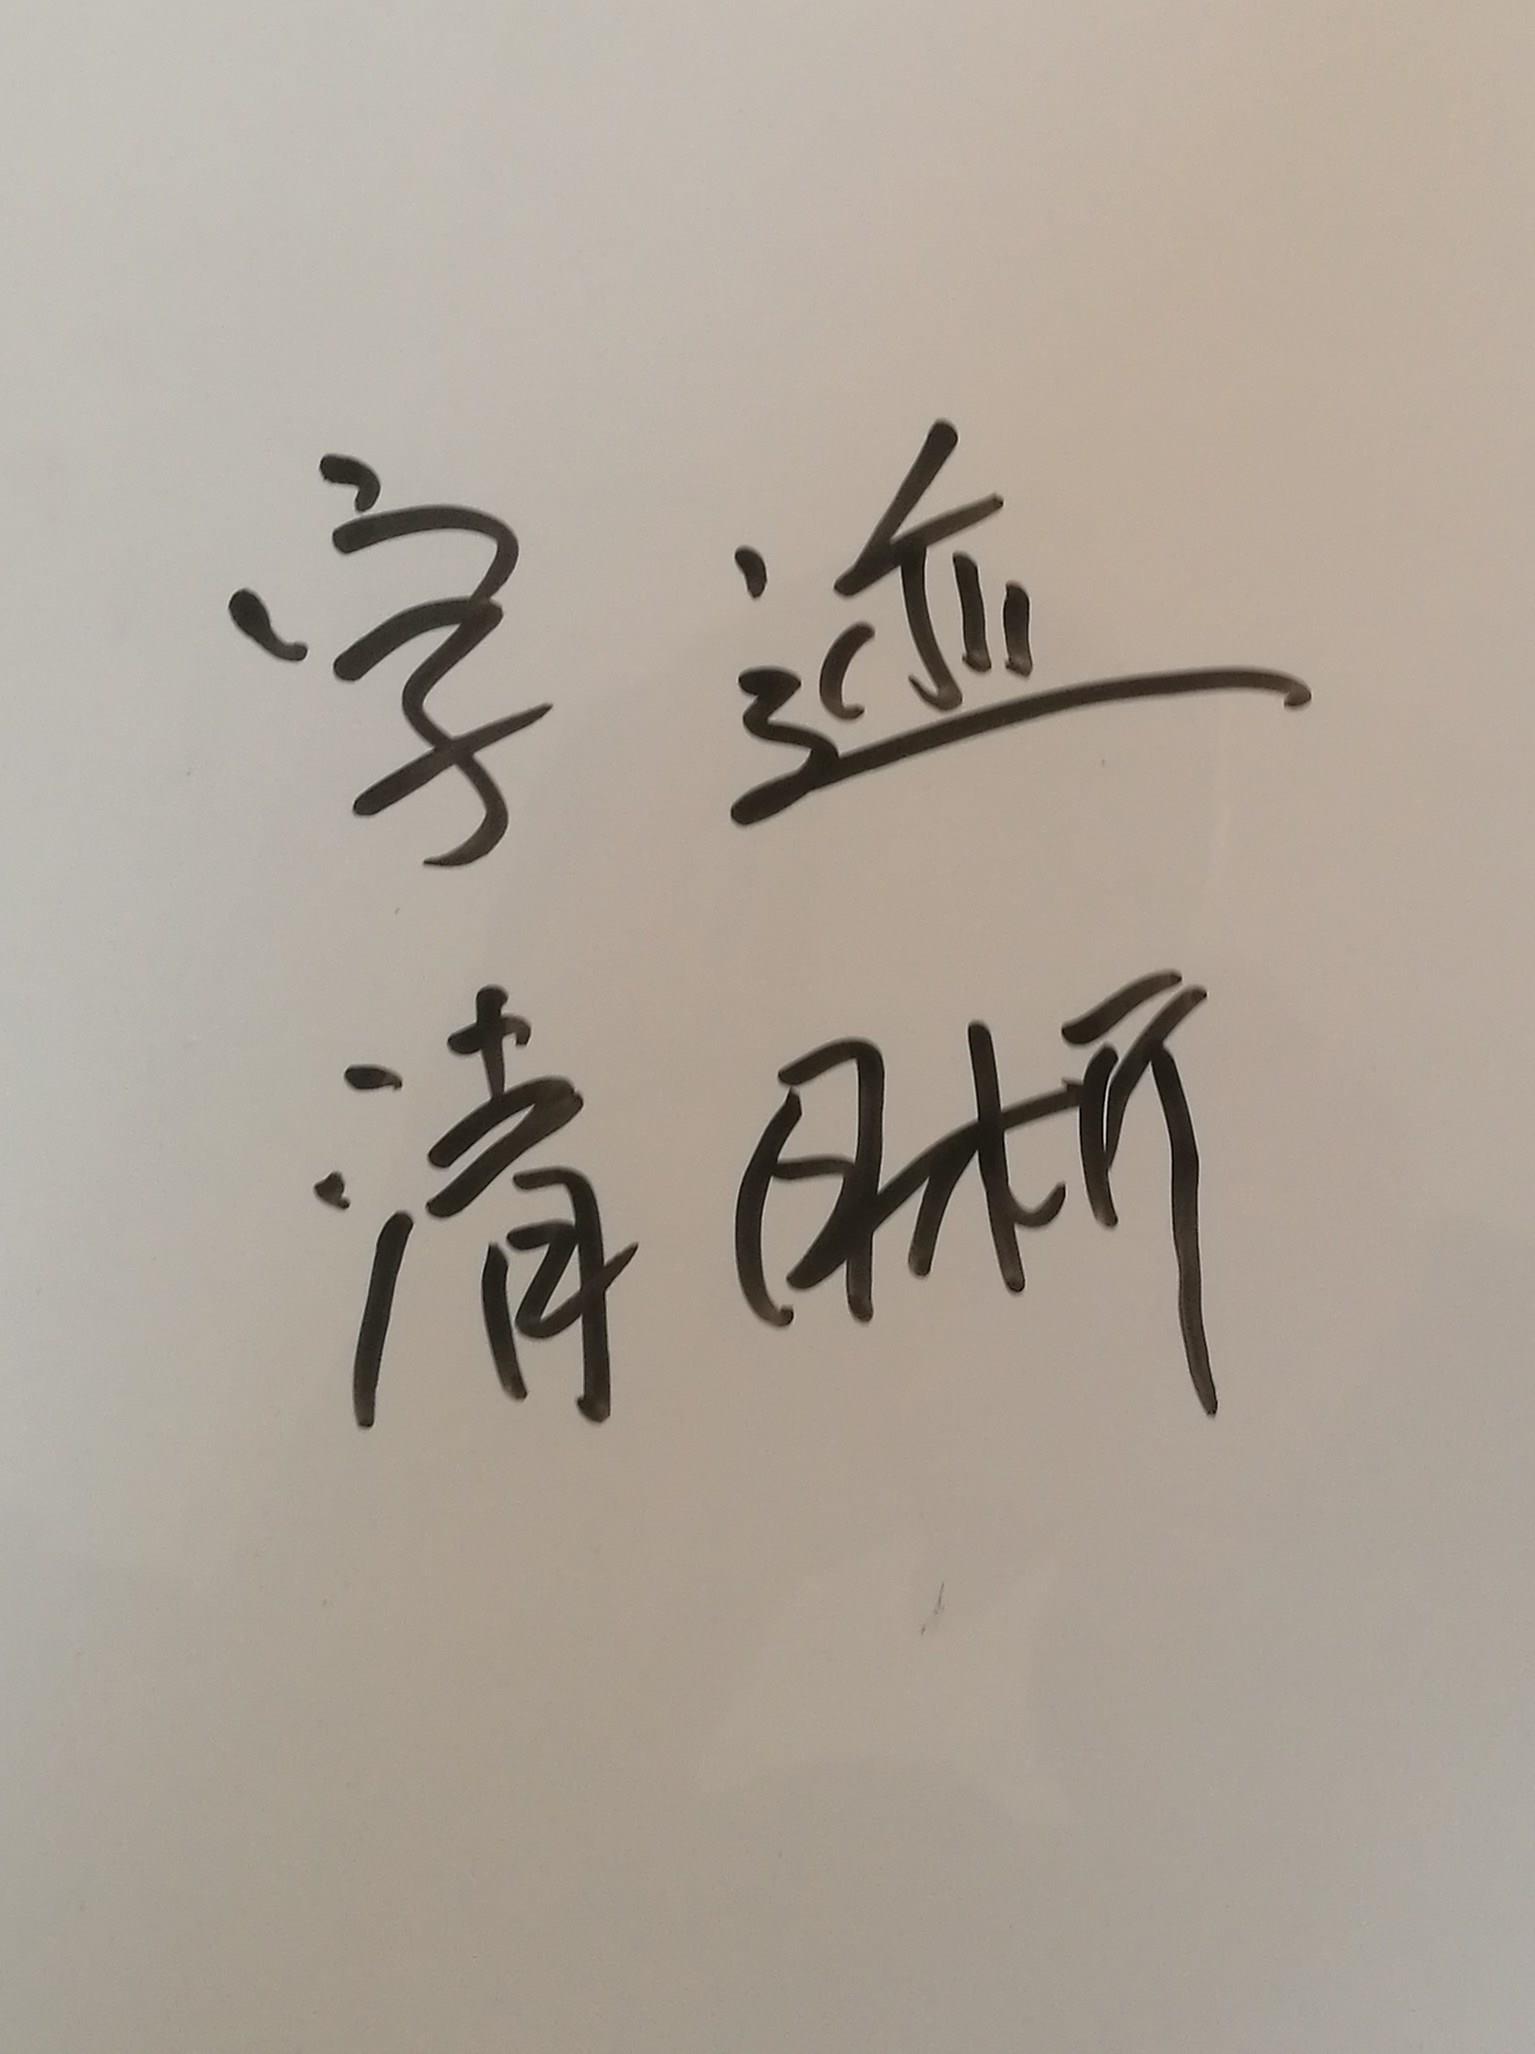 字迹
清晰